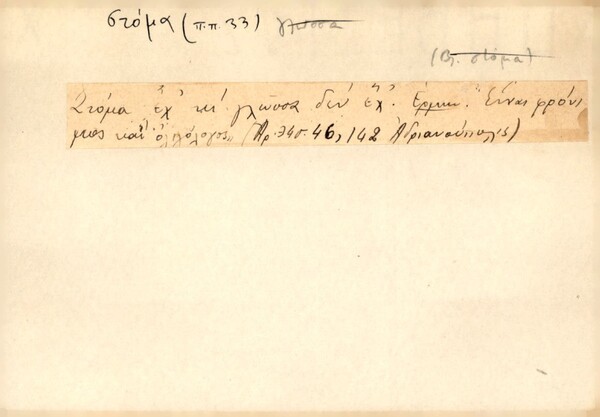 στόμα (π.π. 33) γλώσσα
(βλ. στόμα)
Στόμα ἔχ' τσί γλῶσσα δέν ἔχ'. Ἑρμην. Εἶναι φρόνι
μος καί ὀλιγόλογος,, (Ἀρ. 346. 46, 142 Ἀδριανούπολις)